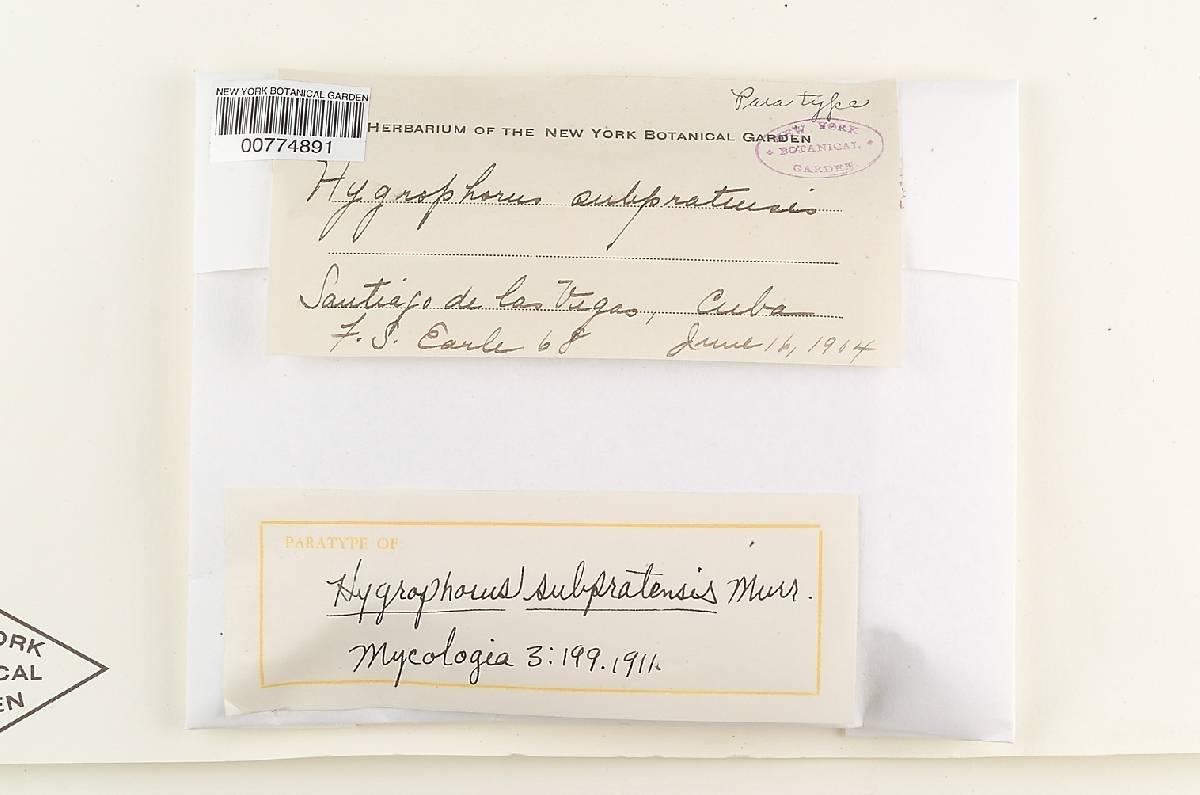 NEW YORK BOTANICAL GARDEN
00774891
Paratype
HERBARIUM OF THE NEW YORK BOTANICAL GARDEN
NEW YORK
BOTANICAL
GARDEN
Hygrophorus subpratensis
Santiago de las Vegas, Cuba
F. S. Earle 68 June 16, 1904
PARATYPE OF
Hygrophorus subpratensis Murr.
Mycologia 3:199. 1911.
ORK
CAL
EN